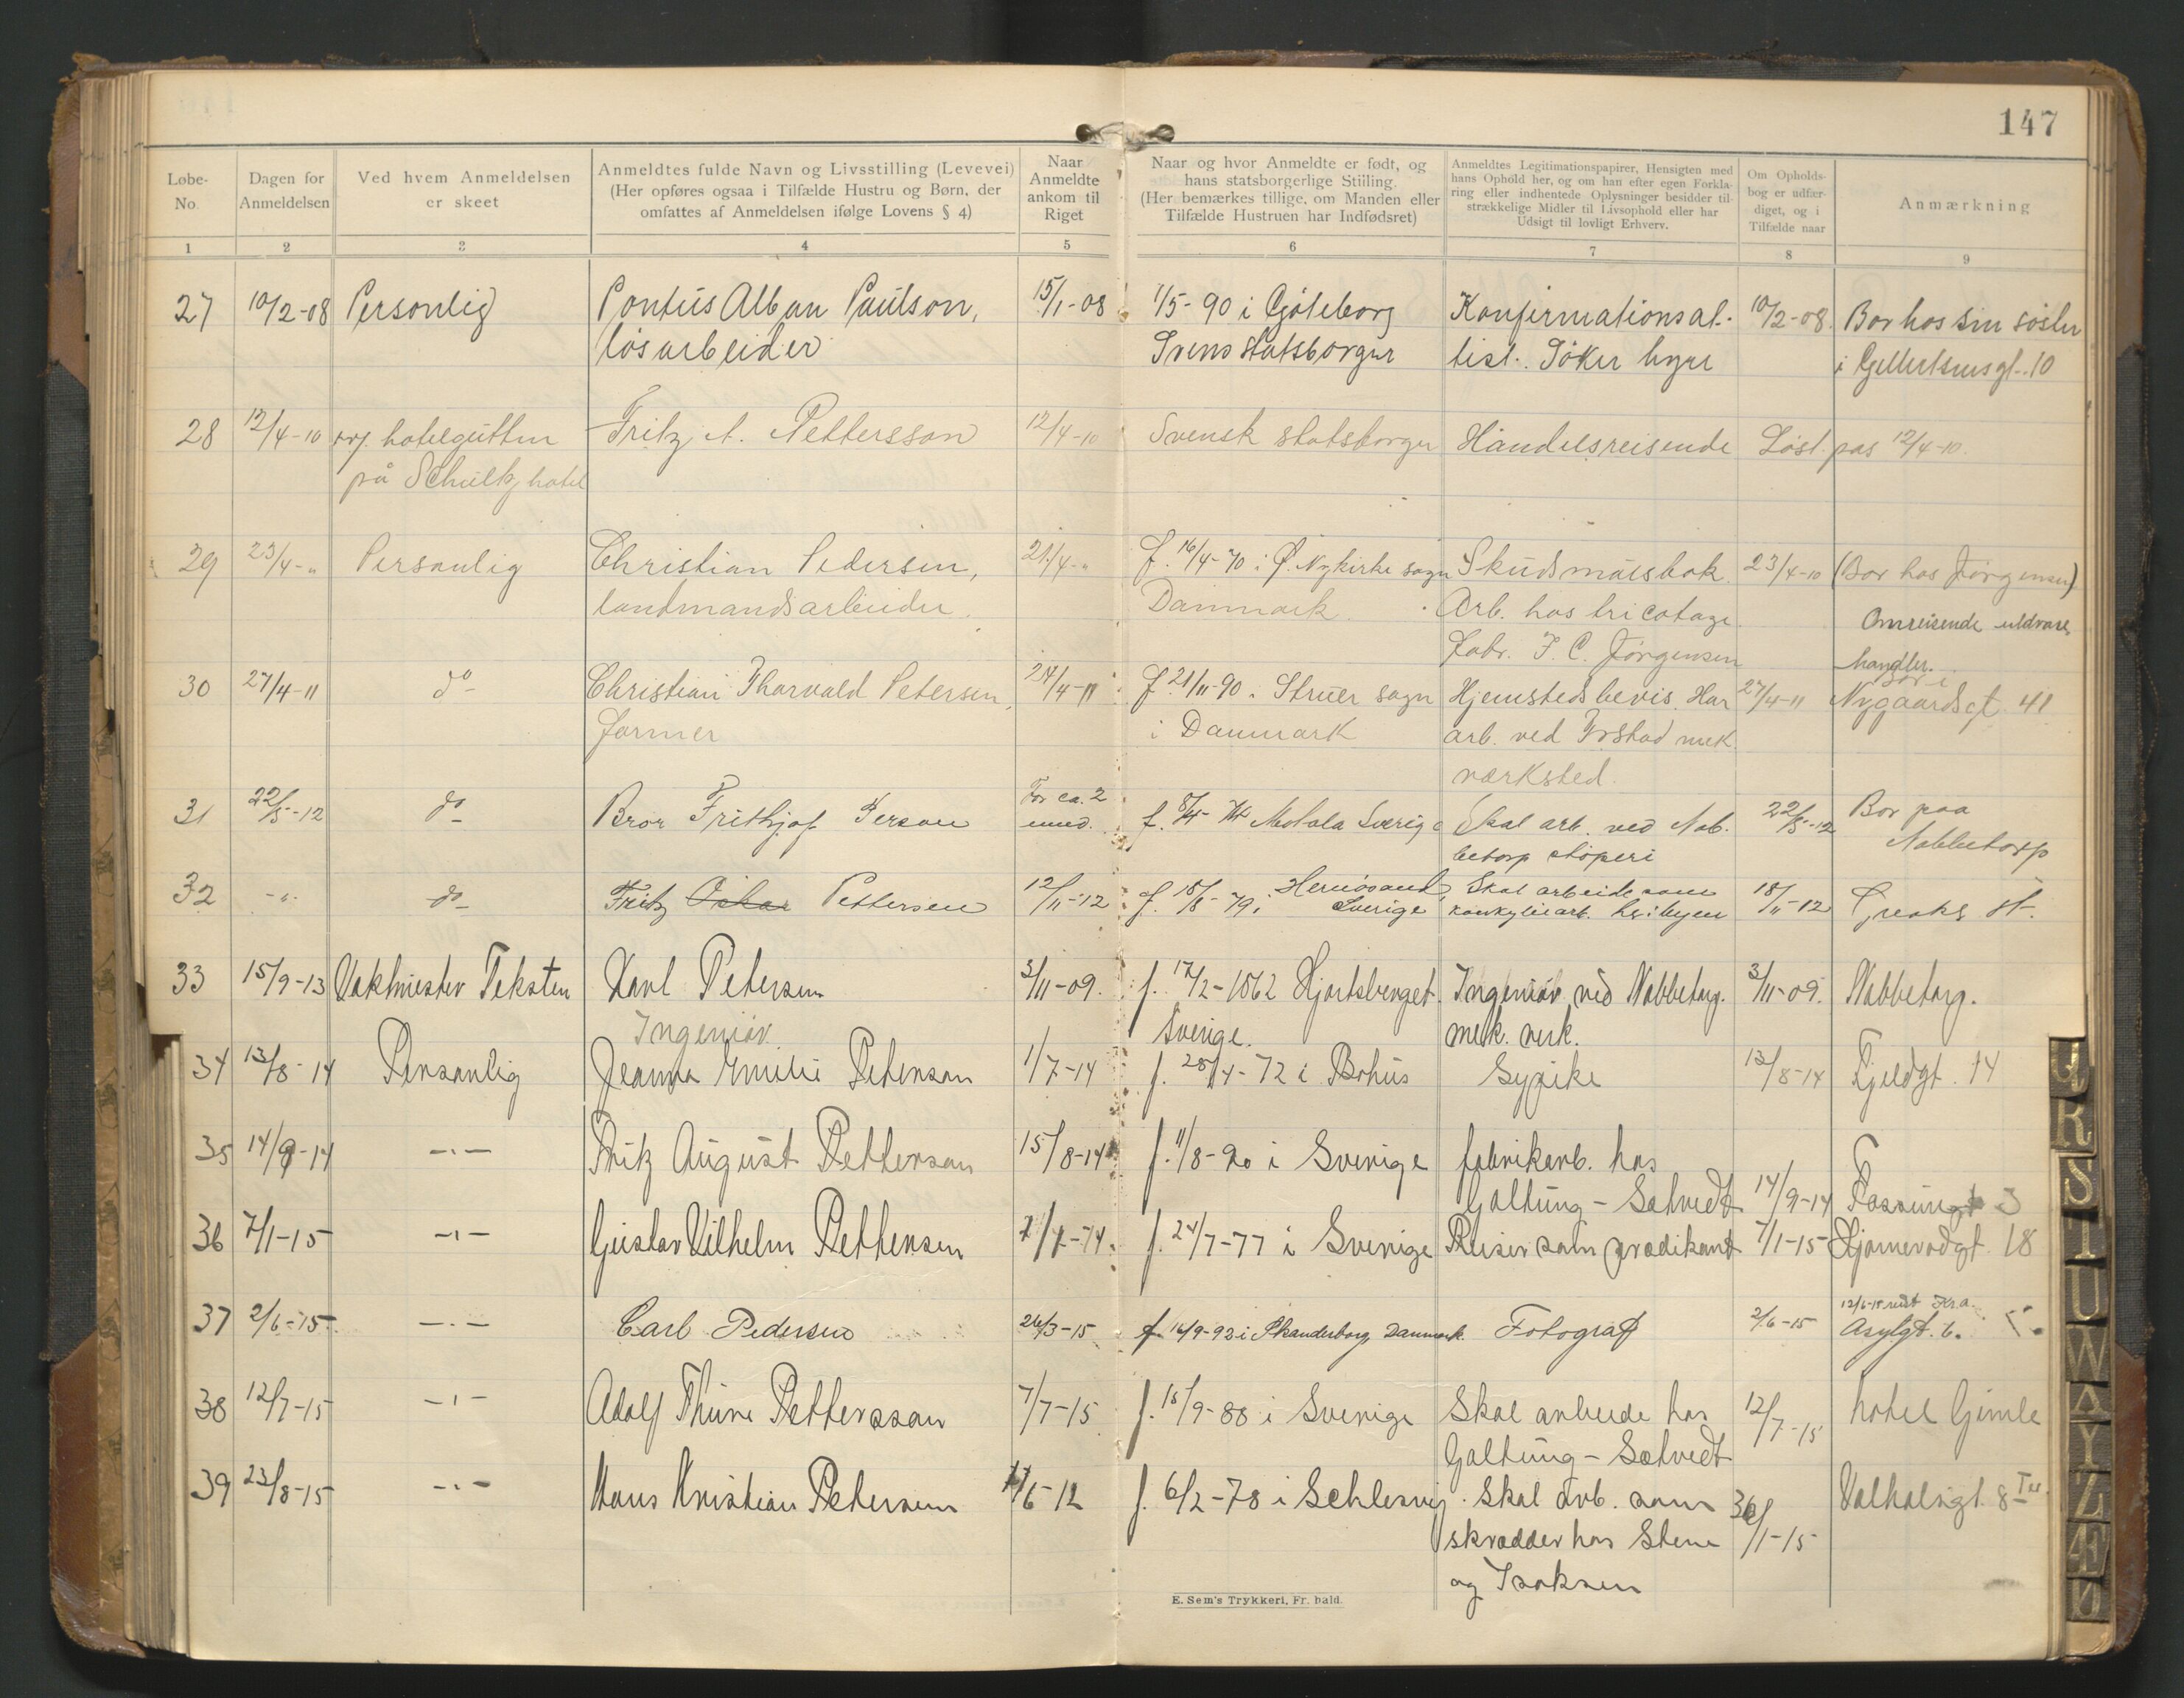 147
Løbe-No.
Dagen for Anmeldelsen
Ved hvem Anmeldelsen er skeet
Anmeldtes fulde Navn og Livsstilling (Levevei) (Her opføres ogsaa i Tilfælde Hustru og Børn, der omfattes af Anmeldelsen ifølge Lovens § 4)
Naar Anmeldte ankom til Riget
Naar og hvor Anmeldte er født, og hans statsborgerlige Stilling. (Her bemærkes tillige, om Manden eller Tilfælde Hustruen har Indfødsret)
Anmeldtes Legitimationspapirer, Hensigten med hans Ophold her, og om han efter egen Forklaring eller indhentede Oplysninger besidder tilstrækkelige Midler til Livsophold eller har Udsigt til lovligt Erhverv.
Om Opholdsbog er udfærdiget, og i Tilfælde naar
Anmærkning
1 2 3 4 5 6 7 8 9
27 10/2-08 Personlig Pontus Alban Paulson, 15/1-08 1/5-90 i Gøteborg Konfirmationsat- 10/2-08 Bor hos sin søster
løsarbeider Svensk statsborger tist. Søker hyre i Gellertsensgt. 10
28 12/4-10 hotelgutten Fritz A. Pettersson 12/4-10 Svensk statsborger Handelsreisende Løst pas 12/4-10.
på Schultz hotel
29 23/4-" Personlig Christian Pedersen, 21/4-" f. 16/4-70 i Ø. Nykirke sogn Skudsmålsbok. 23/4-10 (Bor hos Jørgensen)
landmandsarbeider. Danmark. Arb. hos tricotage Omreisende uldvare
Fabr. J. C. Jørgensen handler.
30 27/4-11 do Christian Thorvald Petersen, 24/4-11 f. 21/11-90 i Struer sogn Hjemstedsbevis. Har 27/4-11 Bor i Nygaardsgt. 41
former i Danmark arb. ved Trosvik mek.
værksted.
31 22/5-12 do Bror Frithjof Person For ca. 2 mnd. f. 8/4-74 Motala Sverige Skal arb. ved Nab- 22/5-12 Bor paa
betorp støperi Nabbetorp
32 -"- do Fritz Oskar Pettersen 12/11-12 f. 18/8-79 i Hernösand, Skal arbeide som 18/11-12 Greaker st.
Sverige her i byen
33 15/9-13 Vaktmester Teksten Karl Petersen 3/11-09. f. 17/2-1862 Hjortsberget. Ingeniør ved Nabbetorp. 3/11-09. Nabbetorp.
Ingeniør Sverige. mek. verk.
34 13/8-14 Personlig Jeanna Emilie Peterson 1/7-14 f. 28/4-72 i Bohus Sypike 13/8-14 Fjeldgt. 14
35 14/9-14 -"- Fritz August Petterson 15/8-14 f. 11/8-90 i Sverige fabrikarb. hos
Galtung-Sætvedt 14/9-14 3
36 7/1-15 -"- Gustav Vilhelm Pettersen 1/7-14. f. 24/7-77 i Sverige Reiser som prædikant 7/1-15 18
37 2/6-15 -"- Carl Pedersen 26/3-15 f. 16/9-92 i Skanderborg Danmark Fotograf 2/6-15 12/6-15 reist Kr.a.
Asylgt. 6.
38 12/7-15 -"- Adolf Thure Pettersson 7/7-15 f. 18/9-88 i Sverige Skal arbeide hos 12/7-15 hotel Gimle
Galtung-Sætvedt
39 23/8-15 -"- Hans Kristian Petersen 11/6-12 f. 6/2-78 i Schlesvig. Skal arb. som 30/1-15 Valhalsgt. 8
skrædder hos Stene
og Isaksen
E. Sem's Trykkeri, Fr. hald.
Q
R
S
T
U
W
X
Y
Z
Æ
Ø